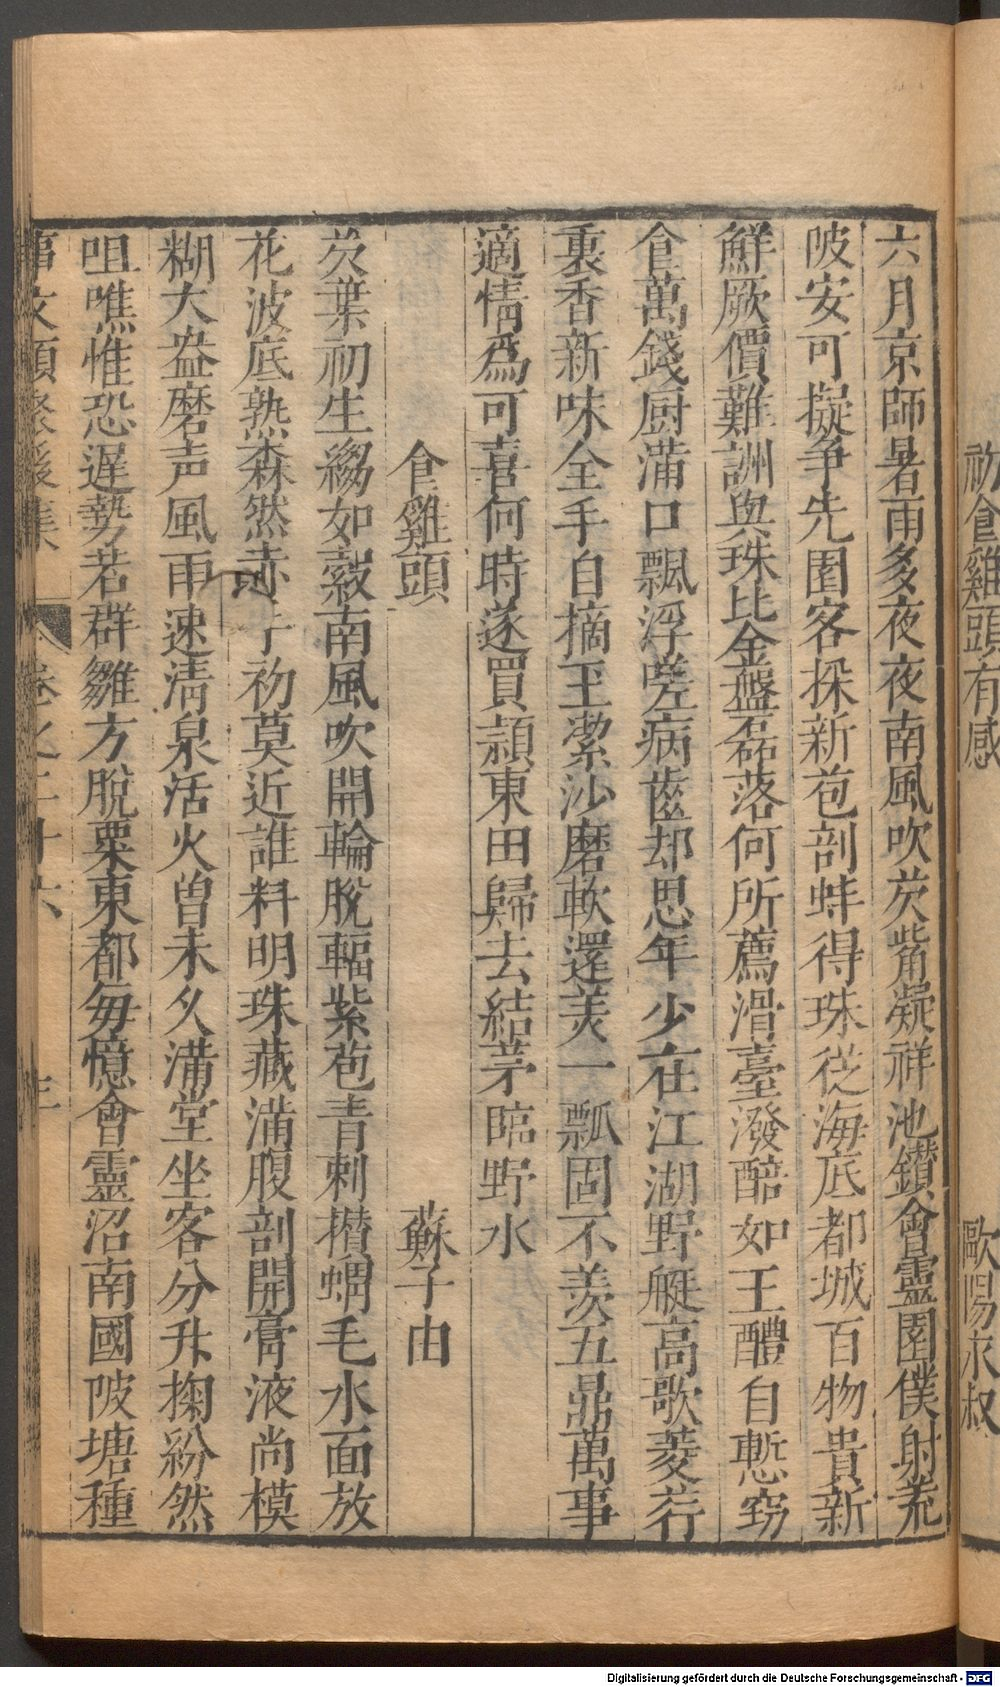 初食雞頭有感　歐陽永叔
六月京師暑雨多夜夜南風吹芡觜凝祥池鑽會靈園僕射荒
陂安可擬争先園客採新苞剖蚌得珠從海底都城百物貴新
鮮厥價難詶與珠比金盤磊落何所薦滑臺潑醅如王醴自慙竊
食萬錢厨滿口飄浮嗟病齒却思年少在江湖野艇高歌菱荇
裏香新味全手自摘玉潔沙磨軟還美一瓢固不羡五鼎萬事
適情爲可喜何時遂買潁東田歸去結茅臨野水
食雞頭　蘇子由
芡葉初生縐如縠南風吹開輪脫輻紫苞青刺攅蝟毛水面放
花波底熟森然赤手初莫近誰料明珠藏滿腹剖開膏液尚模
糊大盎磨声風雨速清泉活火曾未久滿堂坐客分升掬紛然
咀噍惟恐遲勢若群雛方脫粟東都每憶會靈沼南國陂塘種
事文類聚後集　卷之二十六
Digitalisierung gefördert durch die Deutsche Forschungsgemeinschaft - DFG